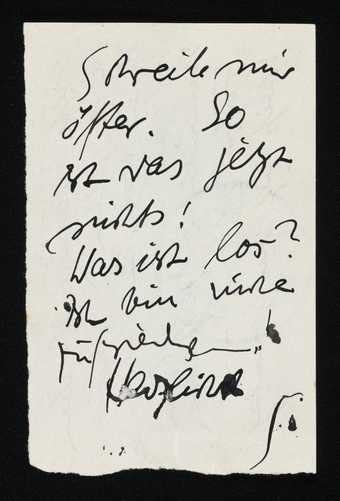 Schreibe mir
öfter. So
ist das jetzt
nichts!
Was ist los?
Ich bin nicht
zufrieden"!
Herzlichst